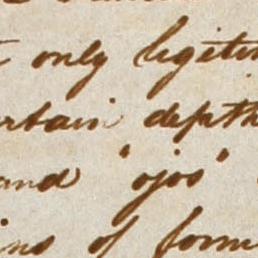 only legitim
certain depth
and "ojos"
ins of form